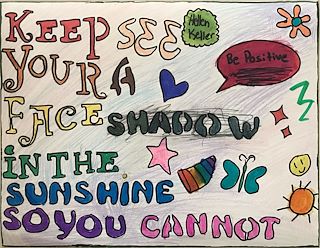 KEEP SEE
Hellen Keller
YOUR A
Be Positive
FACE SHADOW
iN THE
SUNSHINE
SO YOU CANNOT